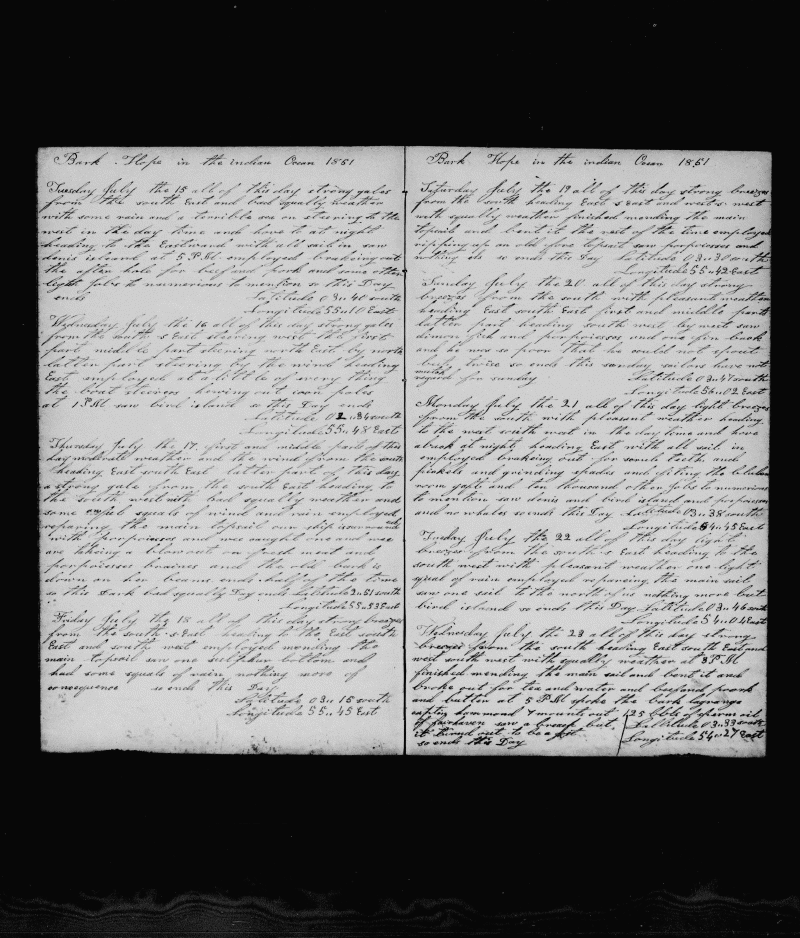 Bark Hope in the indian Ocean 1851
Tuesday July the 15 all of this day strong gales
from the south East and bad squally weather
with some rain and a terrible sea on steering to the
west in the day time and hove to at night
heading to the Eastward with all sail in saw
denis island at 5 P.M employed breaking out
the after hole for beef and pork and some other
light jobs to numerious to mention so this Day
ends Latitude 03 " 40 south
Longitude 55 " 10 East
Wednesday July the 16 all of this day strong gales
from the south s East steering west the first
part middle part steering north East by north
latter part steering by the wind heading
East employed at a little of every thing
the boat steerers hewing out iron poles
at 1 P.M saw bird island so this Day ends
Latitude 02 " 34 south
Longitude 55 " 48 East
Thursday July the 17 first and middle parts of this
day moderate weather and the wind from the south
heading East south East latter part of this day
a strong gale from the south East heading to
the south west with bad squally weather and
some squals of wind and rain employed
reparing the main topsail our ship
with porpoises and wee caught one and wee
are takeing a blowout on fresh meat and
porpoises braines and the old bark is
down on her beams ends half of the time
so this Dark bad squally Day ends Latitude 2 " 51 south
Longitude 55 " 53 East
Friday July the 18 all of this day strong breezes
from the south s East heading to the East south
East and south west employed mending the
main topsail saw one sulphur bottom and
had some squals of rain nothing more of
consequence so ends this Day
Latitude 03 " 15 south
Longitude 55 " 45 East
Bark Hope in the indian Ocean 1851
Saturday July the 19 all of this day strong breezes
from the south heading East s East and west s west
with squally weather finished mending the main
topsail and bent it the rest of the time employed
ripping up an old fore topsail saw porpoises and
nothing els so ends this Day Latitude 03 " 30 south
Longitude 55 " 42 East
Sunday July the 20 all of this day strong
breezes from the south with pleasant weather
heading East south East first and middle parts
latter part heading south west by west saw
dimon fish and porpoises and one fin back
and he was so poor that he could not spout
but twice so ends this sunday sailors have not
much
regard for sunday Latitude 03 " 47 south
Longitude 56 " 02 East
Monday July the 21 all of this day light breezes
from the south with pleasant weather heading
to the west s west in the day time and hove
aback at night heading East with all sail in
employed breaking out for scrub teeth and
pickets and grinding spades and fiting the
worm yesti and ten thousand other jobs to numerious
to mention saw denis and bird island and porpoises
and no whales so ends this Day Latitude 03 " 38 south
Longitude 54 " 45 East
Tuesday July the 22 all of this day light
breezes from the south s East heading to the
south west with pleasant weather one light
squal of rain employed repareing the main sail
saw one sail to the north of us nothing more but
bird island so ends this Day Latitude 03 " 46 south
Longitude 54 " 04 East
Wednesday July the 23 all of this day strong
breezes from the south heading East south East and
west south west with squally weather at 3 P.M
finished mending the main sail and bent it and
broke out for tea and water and beef and poork
and butter at 5 P.M spoke the bark lagrange
captin hammond 7 mounts out 425 bbls of sperm oil
of fairhaven saw a breach but Latitude 03 " 33 south
it turnd out to be a fish Longitude 54 " 27 East
so ends this Day